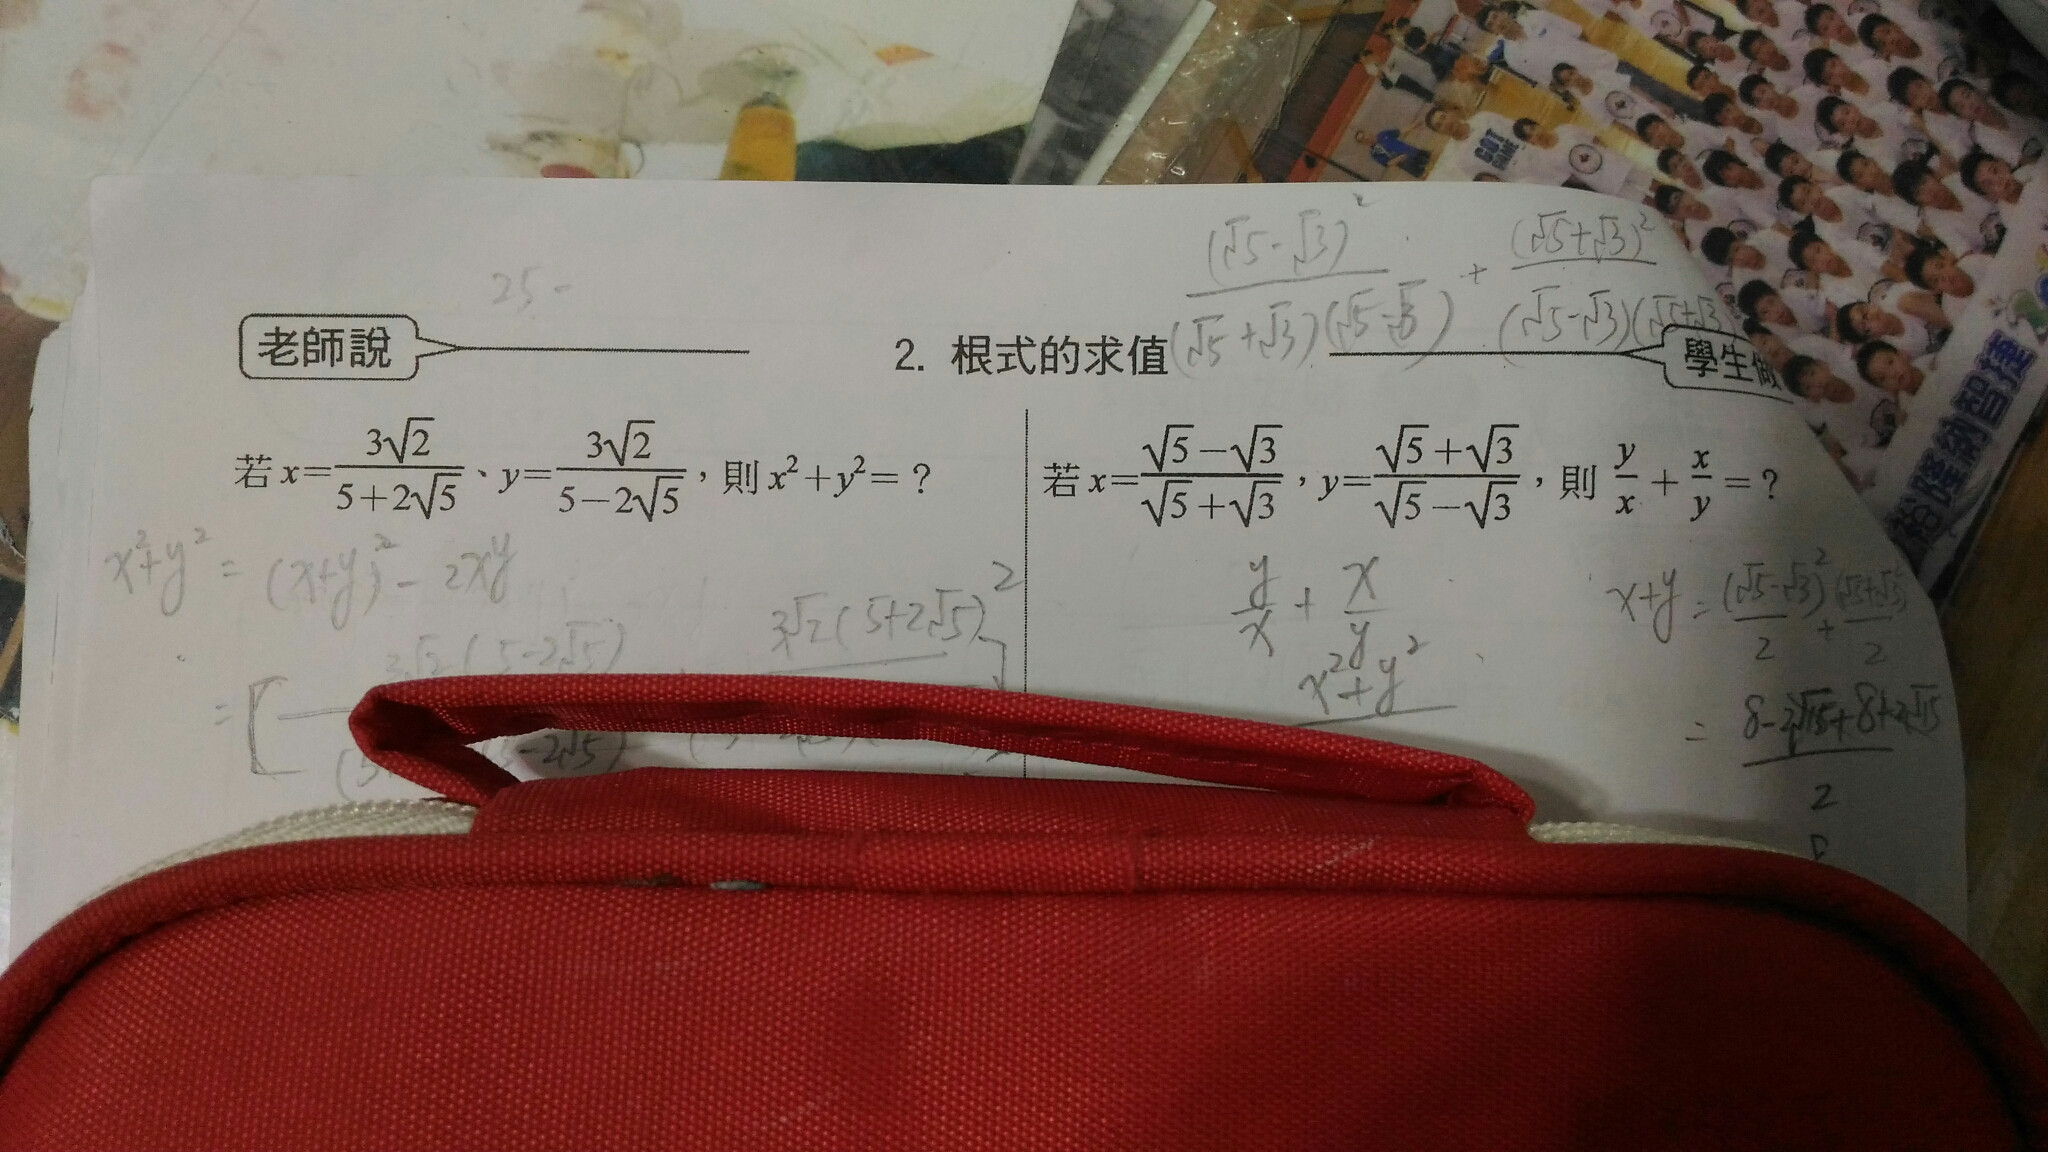 (√5-√3)² / (√5+√3)(√5-√3) + (√5+√3)² / (√5-√3)(√5+√3)
25 -
老師說
2. 根式的求值
學生做
若 x=3√2/(5+2√5)、y=3√2/(5−2√5),則 x²+y²=?
x²+y² = (x+y)² - 2xy
= [ 3√2(5-2√5) 3√2(5+2√5) ]²
(5 5-2√5)
若 x=(√5−√3)/(√5+√3),y=(√5+√3)/(√5−√3),則 y/x + x/y =?
y/x + x/y
x²+y²
x+y = (√5-√3)²/2 + (√5+√3)²/2
= (8-2√15+8+2√15)/2
GOT GAME
裕隆納智捷